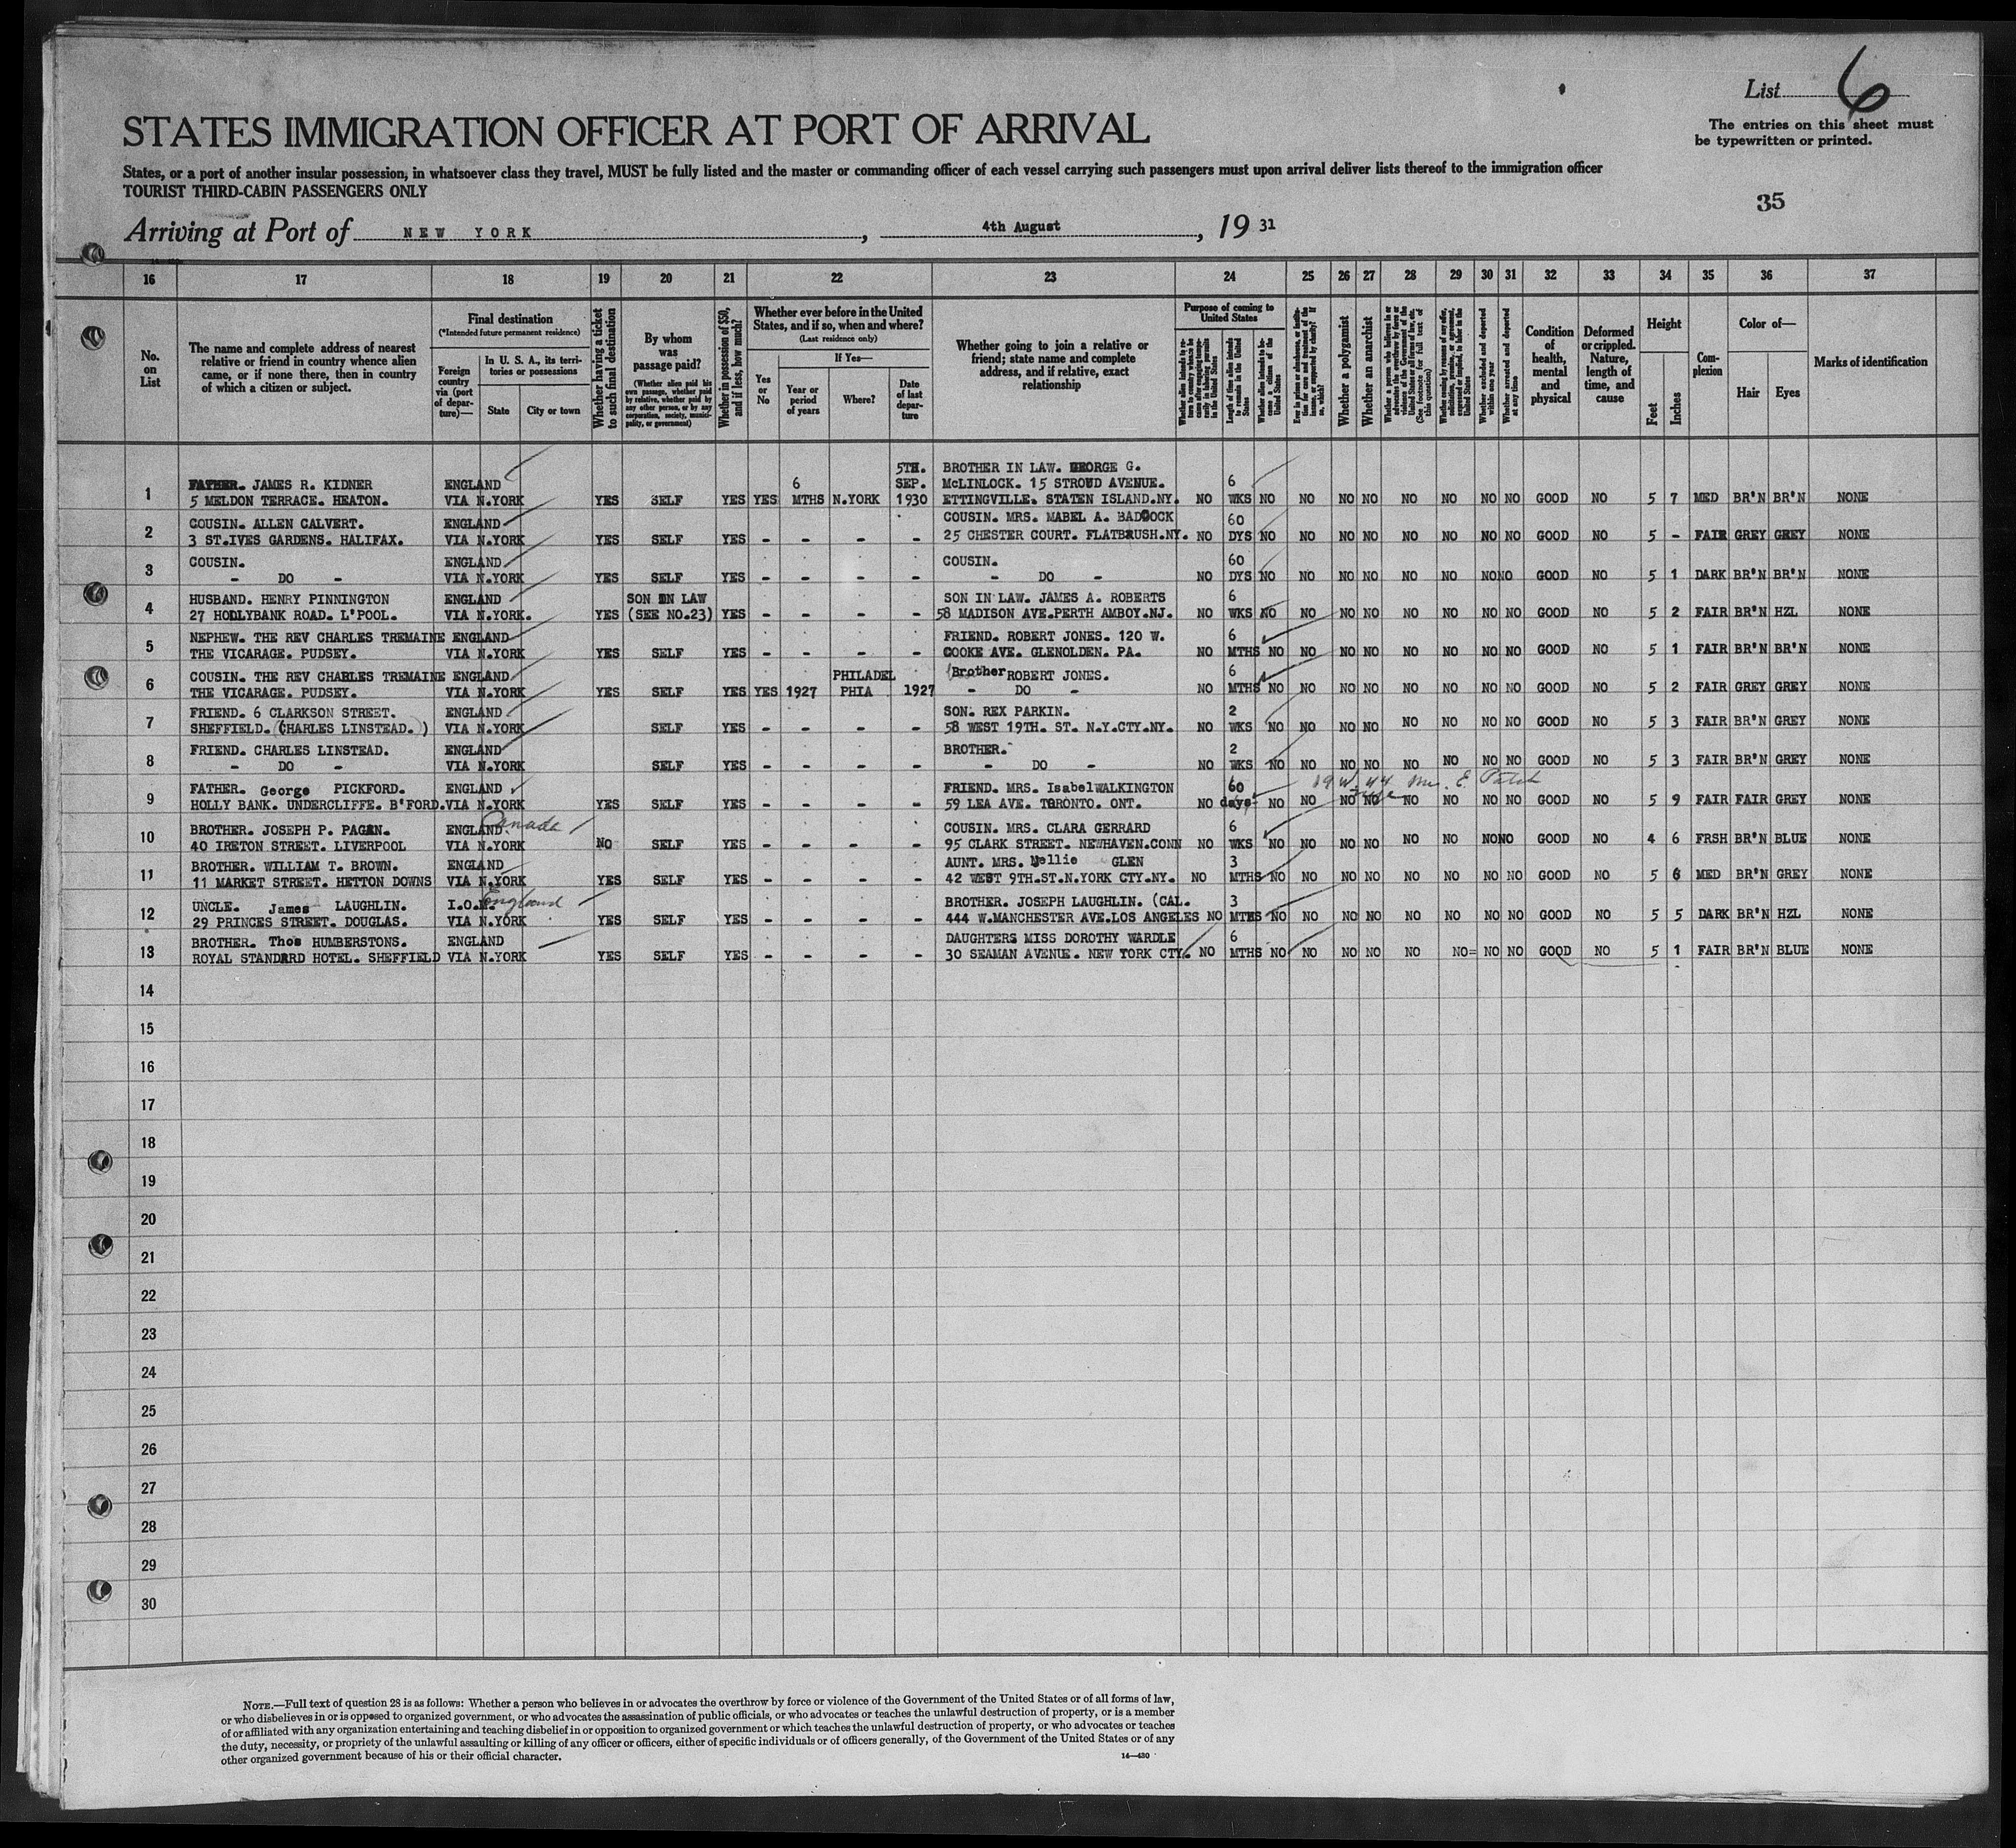 List 6
The entries on this sheet must
be typewritten or printed.
STATES IMMIGRATION OFFICER AT PORT OF ARRIVAL
States, or a port of another insular possession, in whatsoever class they travel, MUST be fully listed and the master or commanding officer of each vessel carrying such passengers must upon arrival deliver lists thereof to the immigration officer
TOURIST THIRD-CABIN PASSENGERS ONLY
35
Arriving at Port of NEW YORK, 4th August, 19 31
16 17 18 19 20 21 22 23 24 25 26 27 28 29 30 31 32 33 34 35 36 37
No. on List
The name and complete address of nearest
relative or friend in country whence alien
came, or if none there, then in country
of which a citizen or subject.
Final destination
(*Intended future permanent residence)
Foreign country via (port of departure)—
In U. S. A., its territories or possessions
State
City or town
Whether having a ticket to such final destination
By whom was passage paid?
(Whether alien paid his own passage, whether paid by relative, whether paid by any other person, or by any corporation, society, municipality, or government)
Whether in possession of $50, and if less, how much?
Whether ever before in the United
States, and if so, when and where?
(Last residence only)
Yes or No
If Yes—
Year or period of years
Where?
Date of last departure
Whether going to join a relative or
friend; state name and complete
address, and if relative, exact
relationship
Purpose of coming to United States
Length of time alien intends to remain in the United States
Whether alien intends to become a citizen of the United States
Whether a polygamist
Whether an anarchist
Whether excluded and deported within one year
Whether arrested and deported at any time
Condition of health, mental and physical
Deformed or crippled. Nature, length of time, and cause
Height
Feet
Inches
Complexion
Color of—
Hair
Eyes
Marks of identification
5TH. BROTHER IN LAW. GEORGE G.
FATHER. JAMES R. KIDNER ENGLAND 6 SEP. McLINLOCK. 15 STROUD AVENUE. 6
1 5 MELDON TERRACE. HEATON. VIA N.YORK YES SELF YES YES MTHS N.YORK 1930 ETTINGVILLE. STATEN ISLAND.NY. NO WKS NO NO NO NO NO NO NO NO GOOD NO 5 7 MED BR'N BR'N NONE
COUSIN. ALLEN CALVERT. ENGLAND COUSIN. MRS. MABEL A. BADCOCK 60
2 3 ST.IVES GARDENS. HALIFAX. VIA N.YORK YES SELF YES - - - - 25 CHESTER COURT. FLATBRUSH.NY. NO DYS NO NO NO NO NO NO NO NO GOOD NO 5 - FAIR GREY GREY NONE
COUSIN. ENGLAND COUSIN. 60
3 - DO - VIA N.YORK YES SELF YES - - - - - DO - NO DYS NO NO NO NO NO NO NO NO GOOD NO 5 1 DARK BR'N BR'N NONE
HUSBAND. HENRY PINNINGTON ENGLAND SON IN LAW SON IN LAW. JAMES A. ROBERTS 6
4 27 HOLLYBANK ROAD. L'POOL. VIA N.YORK. YES (SEE NO.23) YES - - - - 58 MADISON AVE.PERTH AMBOY.NJ. NO WKS NO NO NO NO NO NO NO NO GOOD NO 5 2 FAIR BR'N HZL NONE
NEPHEW. THE REV CHARLES TREMAINE ENGLAND FRIEND. ROBERT JONES. 120 W. 6
5 THE VICARAGE. PUDSEY. VIA N.YORK YES SELF YES - - - - COOKE AVE. GLENOLDEN. PA. NO MTHS NO NO NO NO NO NO NO NO GOOD NO 5 1 FAIR BR'N BR'N NONE
COUSIN. THE REV CHARLES TREMAINE ENGLAND PHILADEL Brother ROBERT JONES. 6
6 THE VICARAGE. PUDSEY. VIA N.YORK YES SELF YES YES 1927 PHIA 1927 - DO - NO MTHS NO NO NO NO NO NO NO NO GOOD NO 5 2 FAIR GREY GREY NONE
FRIEND. 6 CLARKSON STREET. ENGLAND SON. REX PARKIN. 2
7 SHEFFIELD. (CHARLES LINSTEAD.) VIA N.YORK SELF YES - - - - 58 WEST 19TH. ST. N.Y.CTY.NY. NO WKS NO NO NO NO NO NO NO NO GOOD NO 5 3 FAIR BR'N GREY NONE
FRIEND. CHARLES LINSTEAD. ENGLAND BROTHER. 2
8 - DO - VIA N.YORK SELF YES - - - - - DO - NO WKS NO NO NO NO NO NO NO NO GOOD NO 5 3 FAIR BR'N GREY NONE
FATHER. George PICKFORD. ENGLAND FRIEND. MRS. Isabel WALKINGTON 60
9 HOLLY BANK. UNDERCLIFFE. B'FORD. VIA N.YORK YES SELF YES - - - - 59 LEA AVE. TORONTO. ONT. NO days NO NO NO NO NO NO NO NO GOOD NO 5 9 FAIR FAIR GREY NONE
Canada
BROTHER. JOSEPH P. PAGAN. ENGLAND COUSIN. MRS. CLARA GERRARD 6
10 40 IRETON STREET. LIVERPOOL VIA N.YORK No SELF YES - - - - 95 CLARK STREET. NEWHAVEN.CONN NO WKS NO NO NO NO NO NO NO NO GOOD NO 4 6 FRSH BR'N BLUE NONE
BROTHER. WILLIAM T. BROWN. ENGLAND AUNT. MRS. Nellie GLEN 3
11 11 MARKET STREET. HETTON DOWNS VIA N.YORK YES SELF YES - - - - 42 WEST 9TH.ST.N.YORK CTY.NY. NO MTHS NO NO NO NO NO NO NO NO GOOD NO 5 6 MED BR'N GREY NONE
UNCLE. James LAUGHLIN. I.O.M. England BROTHER. JOSEPH LAUGHLIN. (CAL. 3
12 29 PRINCES STREET. DOUGLAS. VIA N.YORK YES SELF YES - - - - 444 W.MANCHESTER AVE.LOS ANGELES NO MTHS NO NO NO NO NO NO NO NO GOOD NO 5 5 DARK BR'N HZL NONE
BROTHER. Thos HUMBERSTONS. ENGLAND DAUGHTERS MISS DOROTHY WARDLE 6
13 ROYAL STANDARD HOTEL. SHEFFIELD VIA N.YORK YES SELF YES - - - - 30 SEAMAN AVENUE. NEW YORK CTY. NO MTHS NO NO NO NO NO NO= NO NO GOOD NO 5 1 FAIR BR'N BLUE NONE
14
15
16
17
18
19
20
21
22
23
24
25
26
27
28
29
30
NOTE.—Full text of question 28 is as follows: Whether a person who believes in or advocates the overthrow by force or violence of the Government of the United States or of all forms of law,
or who disbelieves in or is opposed to organized government, or who advocates the assassination of public officials, or who advocates or teaches the unlawful destruction of property, or is a member
of or affiliated with any organization entertaining and teaching disbelief in or opposition to organized government or which teaches the unlawful destruction of property, or who advocates or teaches
the duty, necessity, or propriety of the unlawful assaulting or killing of any officer or officers, either of specific individuals or of officers generally, of the Government of the United States or of any
other organized government because of his or their official character. 14—430